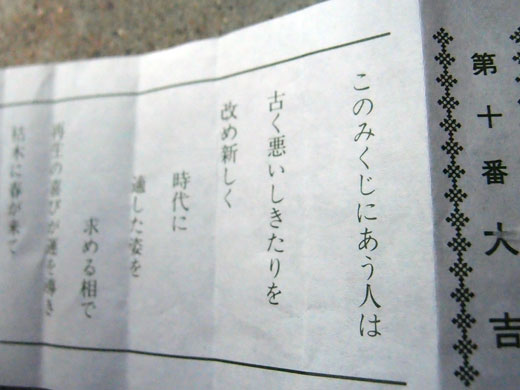 第十番大吉
このみくじにあう人は
古く悪いしきたりを
改め新しく
時代に
適した姿を
求める相で
再生の喜びが運を導き
枯木に春が来て